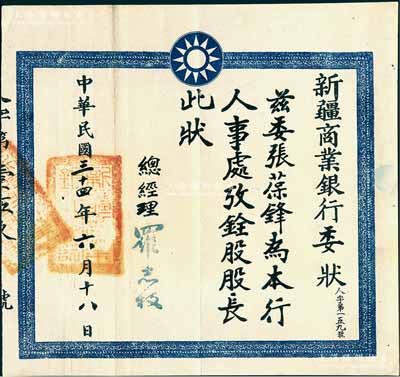 新疆商業銀行委狀
人字第一五九號
茲委張葆鋒為本行
人事處攷銓股股長
此狀
總經理 羅志枚
中華民國三十四年六月十八日